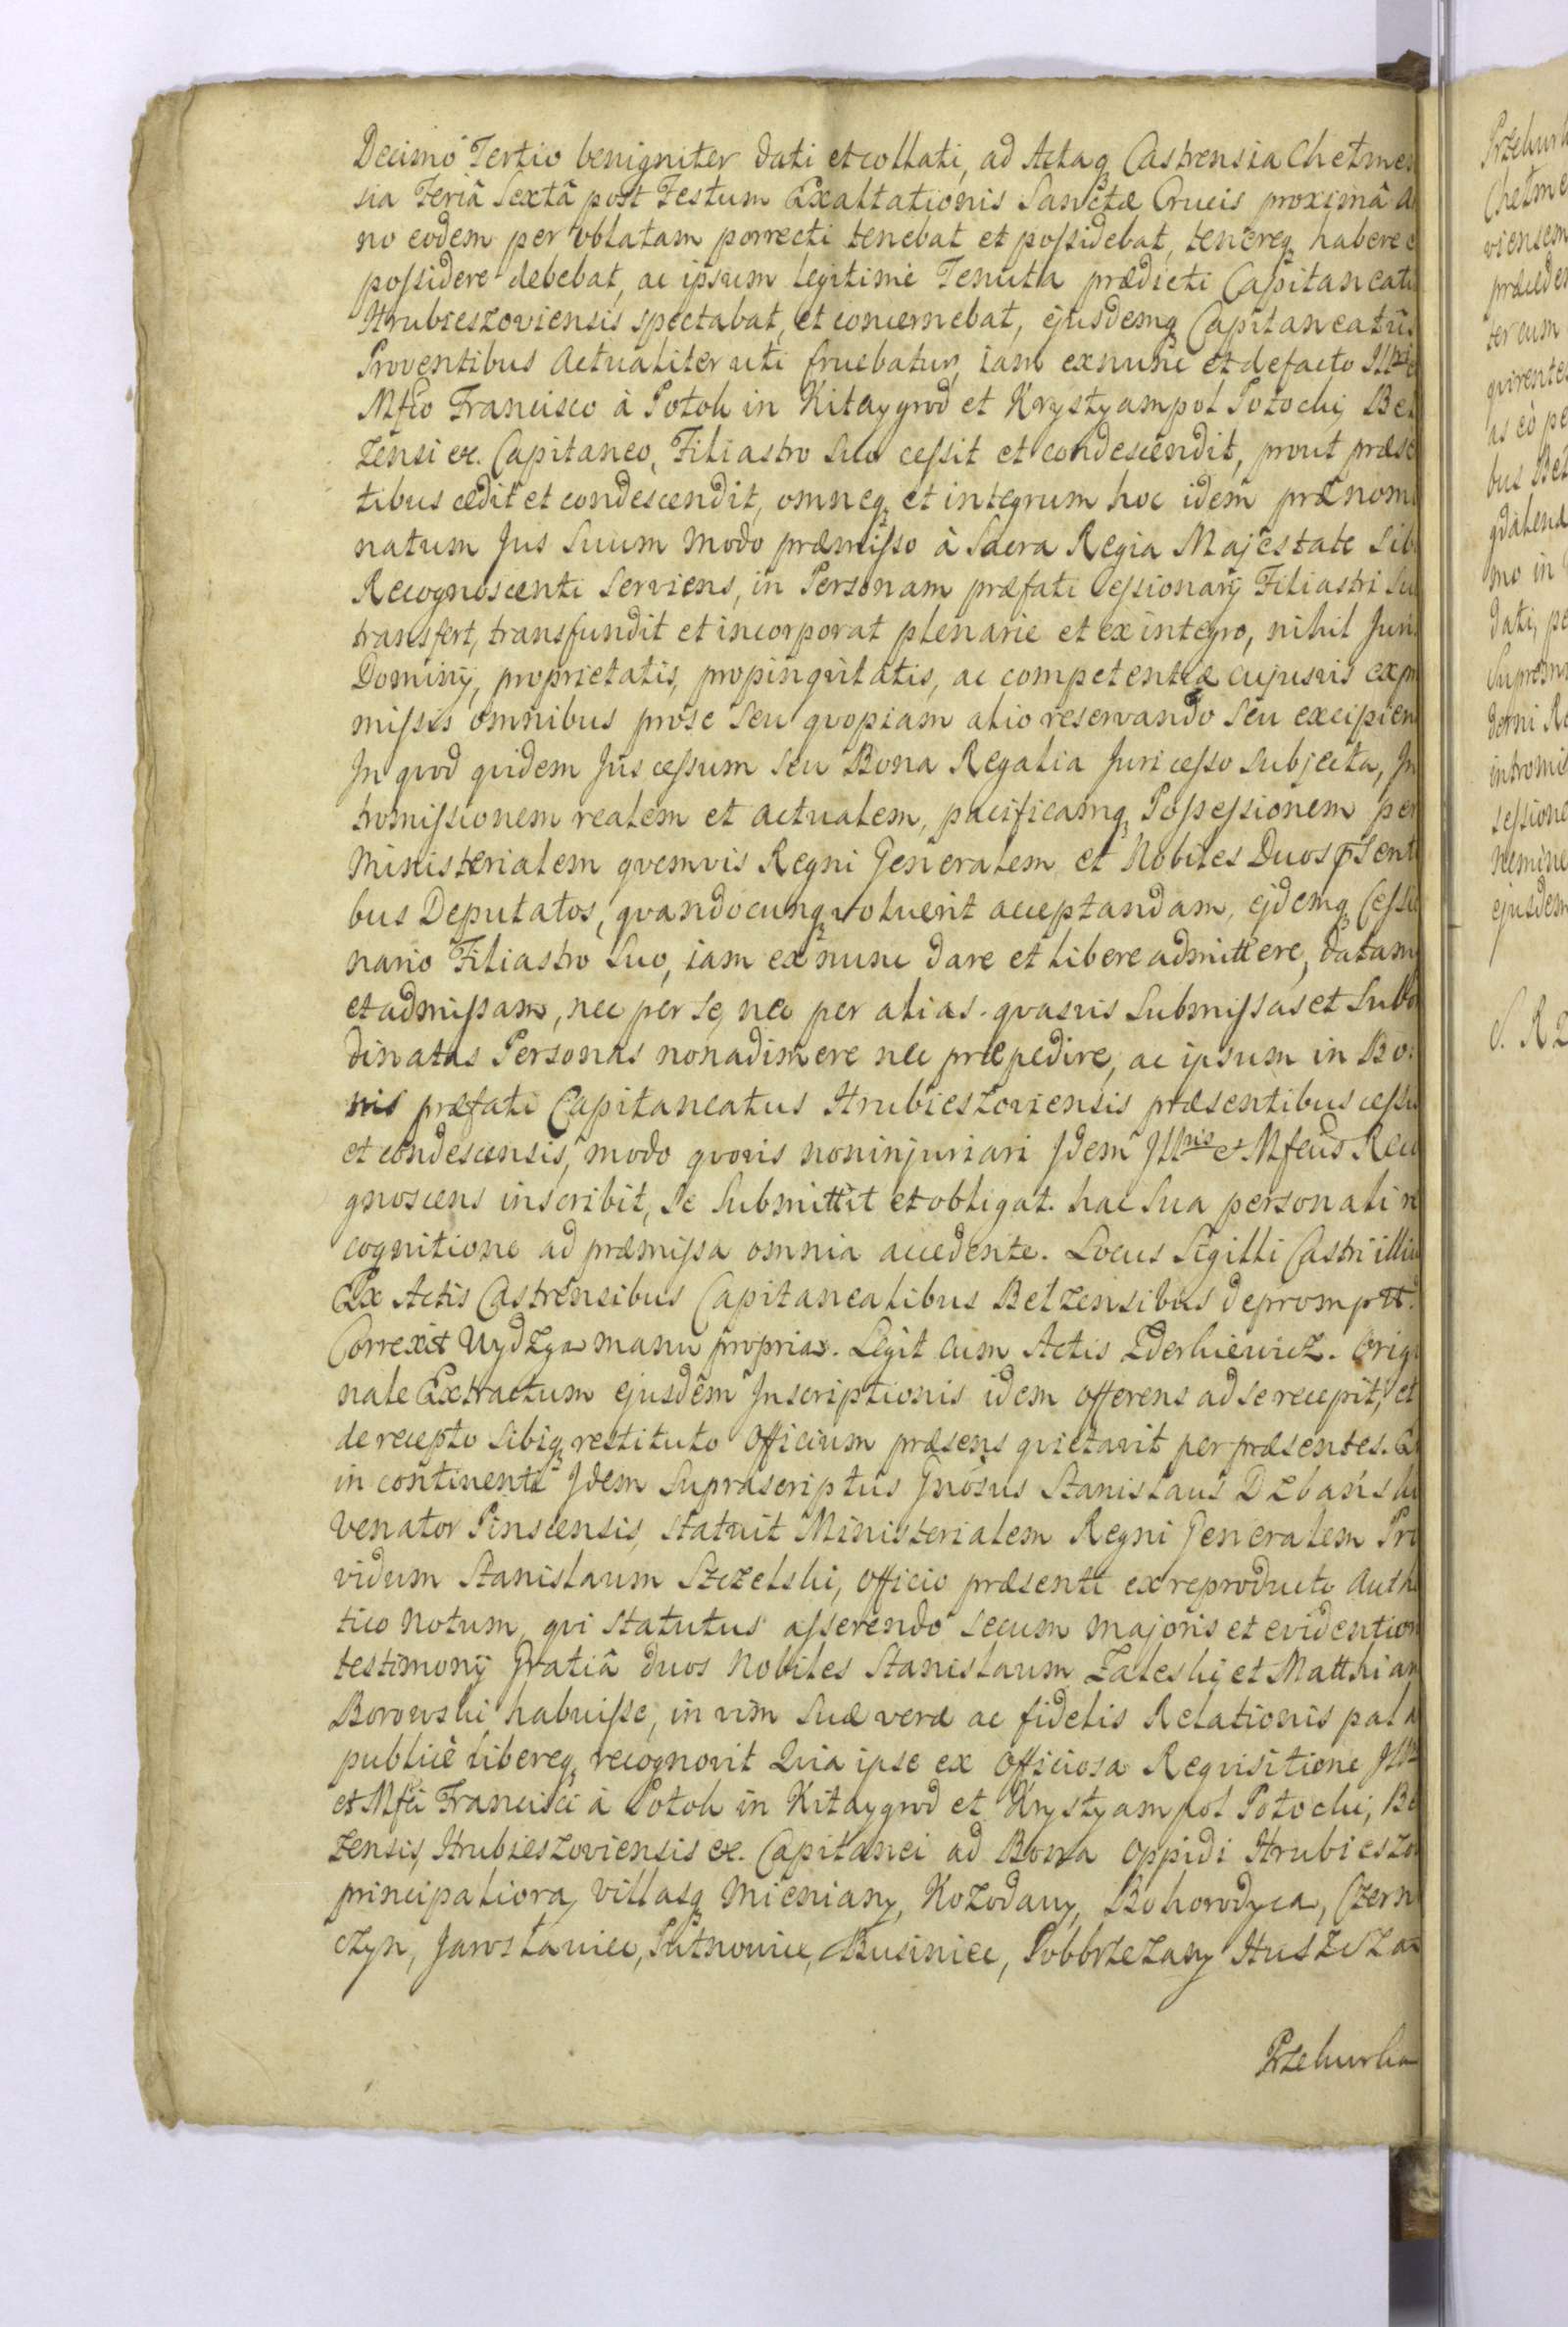 Decimo Tertio benigniter dati et collati, ad Actaq Castrensia Chełmen
sia Feriâ Sextâ post Festum Exaltationis Sanctæ Crucis proximâ A
no eodem per oblatam porrecti tenebat et possidebat, tenereq habere e
possidere debebat, ac ipsum legitime Tenuta prædicti Capitaneatu
Hrubieszoviensis spectabat, et concernebat, ejusdemq Capitaneatûs
Proventibus Actualiter uti fruebatur, iam exnunc et defacto Illri e
Mfco Francisco à Potok in Kitaygrod et Krystyampol Potocki, Bel
zensi &c. Capitaneo, Filiastro Suo cessit et condescendit, prout præse
tibus cedit et condescendit, omneq et integrum hoc idem prænomi
natum Jus Suum modo præmisso à Sacra Regia Majestate Sibi
Recognoscenti Serviens, in Personam præfati Cessionarij Filiastri Su
transfert, transfundit et incorporat plenarie et ex integro, nihil Juri
Dominij, proprietatis, propinqvitatis, ac competentiæ cujusvis expr
missis omnibus prose seu qvopiam alio reservando seu excipien
In qvod qvidem Jus cessum seu Bona Regalia Juri cesso Subjecta, In
tromissionem realem et actualem, pacificamq Possessionem per
Ministerialem qvemvis Regni Generalem et Nobiles Duos psenti
bus Deputatos, qvandocunq voluerit acceptandam, ejdemq Cessio
nario Filiastro Suo, iam ex nunc dare et libere admittere, datam
et admissam, nec per se, nec per alias qvasvis Submissas et Subo
dinatas Personas non adimere nec præpedire, ac ipsum in Bo:
nis præfati Capitaneatus Hrubieszoviensis præsentibus cessi
et condescensis, modo qvovis non injuriari Idem Illris et Mfcus Reco
gnoscens inscribit, se Submittit et obligat. hac Sua personali re
cognitione ad præmissa omnia accedente. Locus Sigilli Castri illiu
Ex Actis Castrensibus Capitanealibus Belzensibus depromptt.
Correxit Uydzga manu propria. Legit cum Actis Zderkiewicz. Origi
nale Extractum ejusdem Inscriptionis idem offerens ad se recepit, et
de recepto Sibiq restituto Officium præsens qvietavit per præsentes. E
in continenti Idem Suprascriptus Gnosus Stanislaus Dłbański
Venator Pinscensis, Statuit Ministerialem Regni Generalem Pro
vidum Stanislaum Szczelski, officio præsenti ex reproducto Auth
tico notum, qvi Statutus asserendo secum majoris et evidention
testimonij Gratiâ duos Nobiles Stanislaum Zaleski et Matthian
Borowski habuisse, in vim Suæ veræ ac fidelis Relationis pala
publicè libereq, recognovit Quia ipse ex officiosa Reqvisitione Illris
et Mfci Francisci à Potok in Kitaygrod et Krystyampol Potocki, Be
zensis, Hrubieszoviensis &c. Capitanei ad Bona Oppidi Hrubieszo
principaliora, villasq Mieniany, Kozodawy, Bohorodyca, Czern
czyn, Jarosławiec, Putnowice, Businiec, Pobbrzezany Huszcza
Przehurka